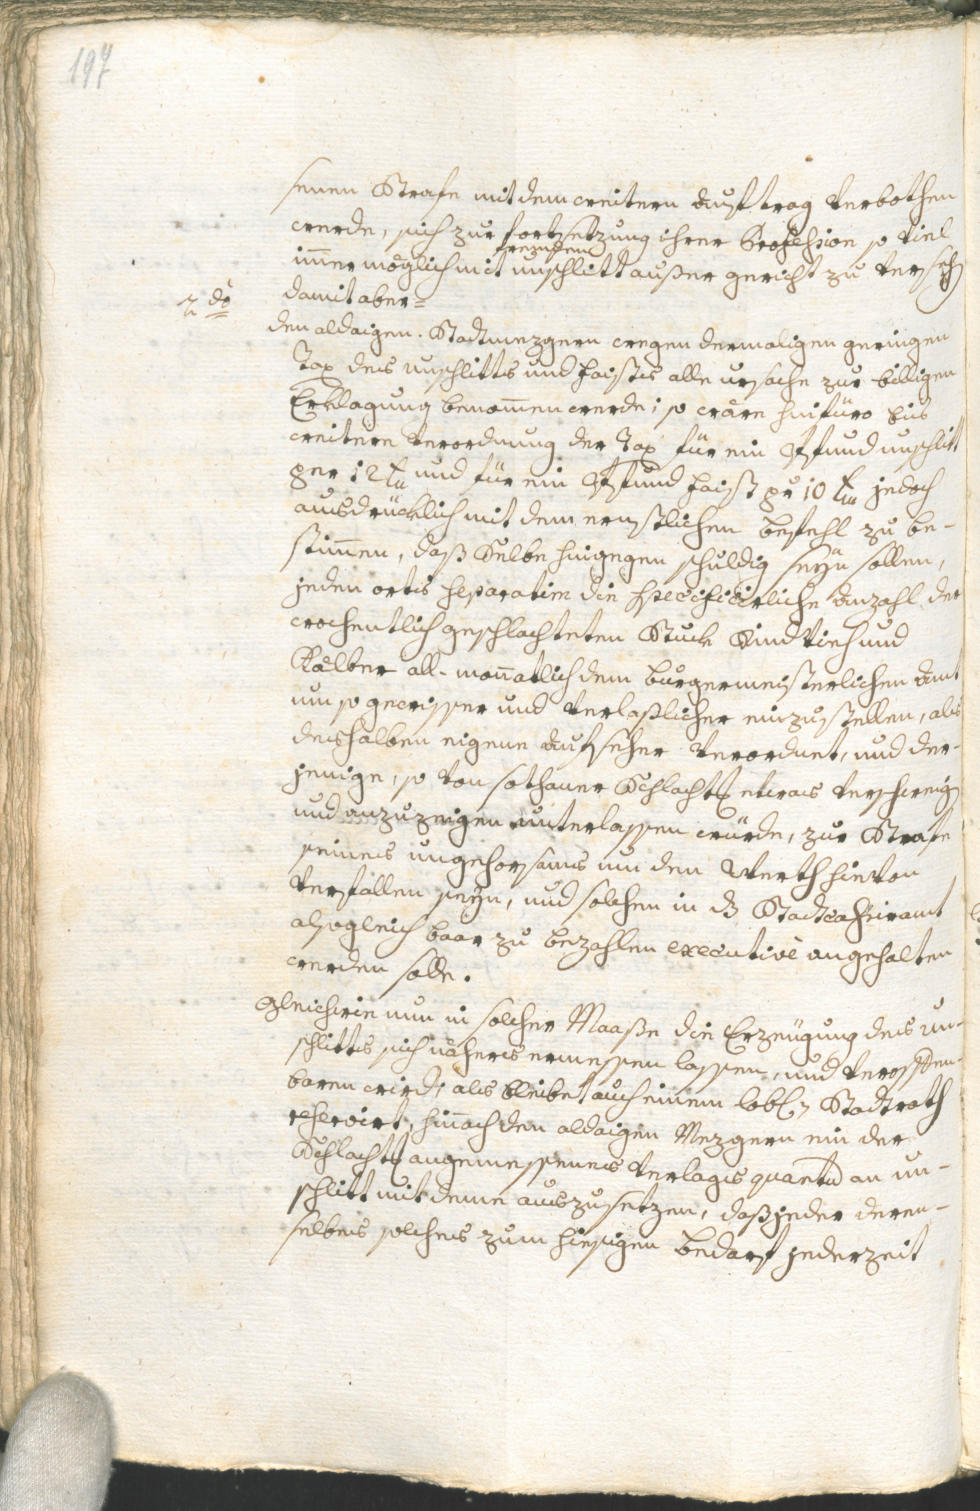 197
senen Strafe mit dem weitern Auftrag verbothen
werde, sich zur fortsetzung ihrer Profession so viel
fremden
immer möglich mit unschlitt außer gericht zu versehen
2do
damit aber=
den aldaigen Stadtmezgern wegen dermaligen geringen
Tax des unschlitts und faists alle ursache zur billigen
Erklagung benommen werde; so wäre hinfüro bis
weitere verordnung der Tax für ein Pfund unschlitt
per 12 kr und für ein Pfund faist pr 10 kr jedoch
ausdrücklich mit dem ernstlichen befehl zu be-
stimmen, daß Selbe hingegen schuldig seyn sollen,
jeden orts separatim die specificirliche Anzahl der
wochentlich geschlachteten Stuck Rindvieh und
Kälber all-monnatlich dem burgermeisterlichen Amt
um so gewisser und verlaßlicher einzustellen, als
deshalben eigene Aufseher verordnet, und der-
jenige, so von sothaner Schlacht etwas verschweigen
und anzuzeigen unterlassen würde, zur Strafe
seines ungehorsams um den Werth hievon
verfallen seyn, und solchen in das Stadtcassieramt
alsogleich baar zu bezahlen executive angehalten
werden solle.
Gleichwie nun in solcher Maaße die Erzeugung des un-
schlitts sich näheres ermessen lassen, und veroffen-
baren wird; als bleibet auch einem lobl. Stadtrath
reservirt, hinnach den aldaigen Mezgern ein der
Schlacht angemessenes verlags quantum an un-
schlitt mit deme auszusetzen, daß jeder deren-
selben solches zum hiesigen bedarf jederzeit